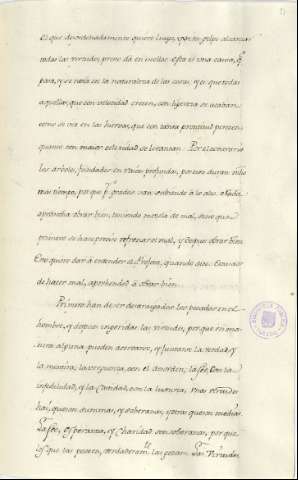 el que desordenadamente quiere luego, y de un golpe alcanzar
todas las virtudes, presto dá en mellas. Esta es una causa, q.
pasa, y se nota en la naturaleza de las cosas, y es que todas
aquellas, que con velocidad crecen, con ligereza se acaban:
como se vé en las hierbas, que con tanta prontitud perecen,
quanto con maior celeridad se levantan. Por el contrario
los arboles, fundados en raices profundas, por eso duran mucho
mas tiempo, porque p.r grados van subiendo á lo alto. A nadie
aprovecha obrar bien, teniendo mezcla de mal, sino que
primero se han de refrenar el mal, y despues obrar bien.
Esto quiso dar á entender el Profeta, quando dice: Descansad
de hacer mal, aprehended á obrar bien.
Primero han de ser desarraigados los pecados en el
hombre, y despues ingeridas las virtudes, porque en ma-
nera alguna pueden acercarse, y juntarse la verdad, y
la mentira; la verguenza con el desorden; la fee con la
infidelidad; y la Castidad, con la luxuria. Unas virtudes
hai, que son summas, y soberanas, y otras que son medias.
La fee, Esperanza, y Charidad son soberanas, porque
los que las poseen, verdaderam.te las poseen. Las Virtudes